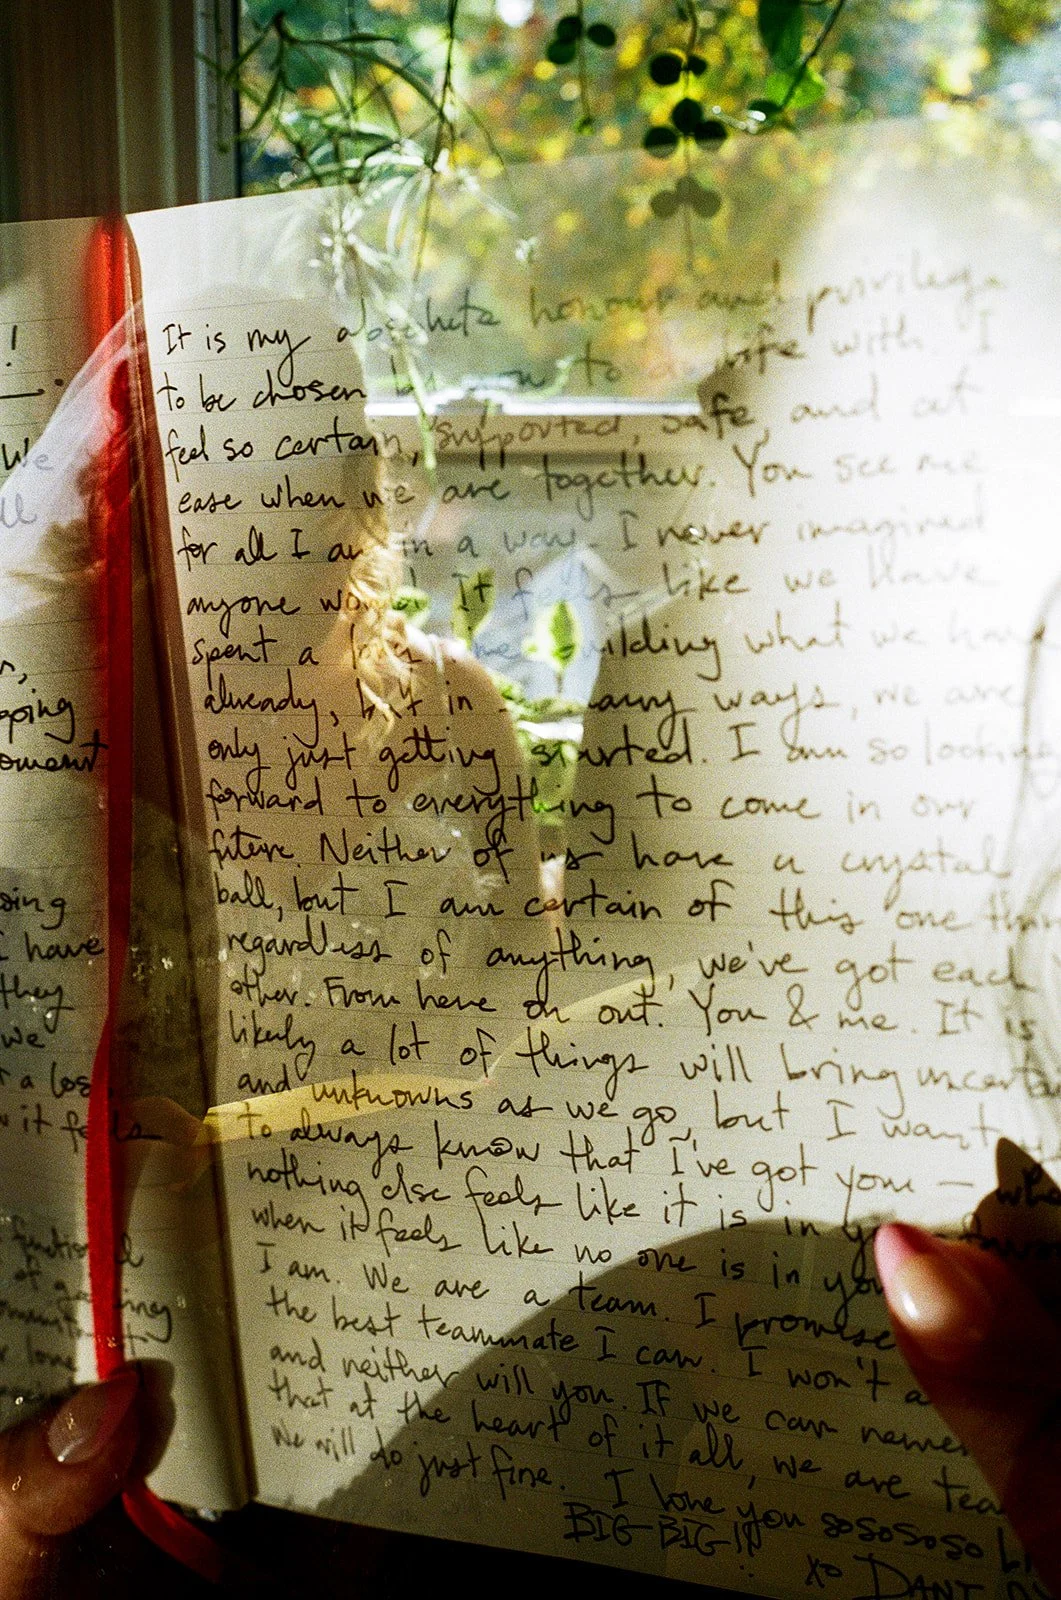 !
We
It is my absolute honour and privilege
to be chosen by you to do life with. I
feel so certain, supported, safe, and at
ease when we are together. You see me
for all I am in a way I never imagined
anyone would. It feels like we have
spent a long time building what we have
already, but in so many ways, we are
only just getting started. I am so looking
forward to everything to come in our
future. Neither of us have a crystal
ball, but I am certain of this one thing
regardless of anything, we've got each
other. From here on out. You & me. It is
likely a lot of things will bring uncerta
and unknowns as we go, but I want
to always know that I've got you — when
nothing else feels like it is in your favour
when it feels like no one is in you
I am. We are a team. I promise
the best teammate I can. I won't
and neither will you. If we can remem
that at the heart of it all, we are tea
we will do just fine. I love you sosososo
BIG BIG!!
xo
oment
I have
they
we
it feels